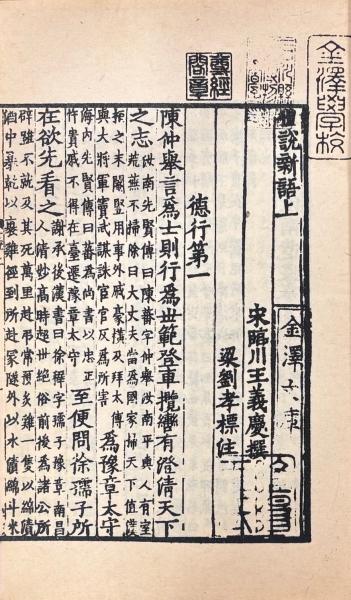 金澤學校
尊經閣章
說新語上
金澤文庫
宋臨川王義慶撰
梁劉孝標注
德行第一
陳仲舉言爲士則行爲世範登車攬轡有澄清天下
之志
汝南先賢傳曰陳蕃字仲舉汝南平輿人有室
荒蕪不掃除曰大丈夫當爲國家掃天下值漢
桓之末閹豎用事外戚豪橫及拜太傅
與大將軍竇武謀誅宦官反爲所害
爲豫章太守
海內先賢傳曰蕃爲尚書以忠正
忤貴戚不得在臺遷豫章太守
至便問徐孺子所
在欲先看之
謝承後漢書曰徐穉字孺子豫章南昌
人清妙高時超世絕俗前後爲諸公所
辟雖不就及其死萬里赴弔常預炙雞一隻以綿漬
酒中暴乾以裹雞徑到所赴冢隧外以水漬綿斗米